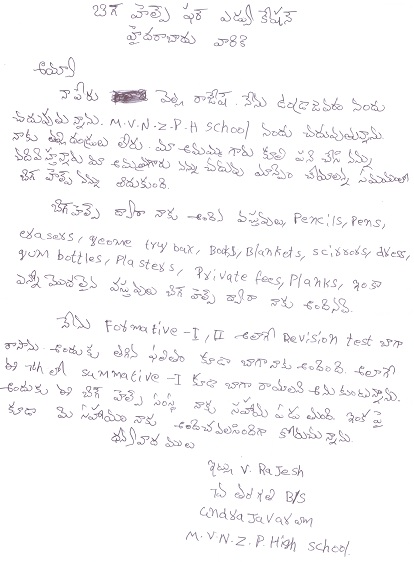 బిగ హెల్ప్ ఫర ఎడ్యు కేషన్
హైదరాబాదు వారికి
అయ్యా
నా పేరు వెల్ల రాజేష్. నేను ఉండ్రాజవరం నందు
చదువుతు న్నాను. M.V.N.Z.P.H School నందు చదువుతున్నాను.
నాకు తల్లిదండ్రులు లేరు. మా అమ్మమ్మ గారు కూలి పని చేసి నన్ను
చదివి స్తున్నారు మా అమ్మమ్మగారు నన్ను చదువు
బిగ హెల్ప్ నన్ను
బిగ హెల్ప్ ద్వారా నాకు అందిన వస్తువులు, Pencils, Pens,
erasers, geome try bax, Books, Blankets, scirrors, dress,
gum bottles, Plasters, Private fees, Planks, ఇంకా
ఎన్నో మొదలైన వస్తువులు బిగ హెల్ప్ ద్వారా నాకు అందినవి.
నేను Formative-I, II అలాగే Revision test బాగా
రాసాను. అందుకు తగిన ఫలితం కూడా బాగా నాకు అందింది. అలాగే
ఈ 7th లో summative-I కూడా బాగా రాయాలని అను కుంటున్నాను.
అందుకు ఈ బిగ్ హెల్ప్ సంస్థ నాకు సహాయ పడు తుంది ఇంక పై
కూడా మీ సహాయం నాకు అందించవలసిందిగా కోరుచు న్నాను.
ధన్యవాద ములు
ఇట్లు V. Rajesh
7వ తరగతి B/S
undrajavaram
M.V.N.Z.P.High school.